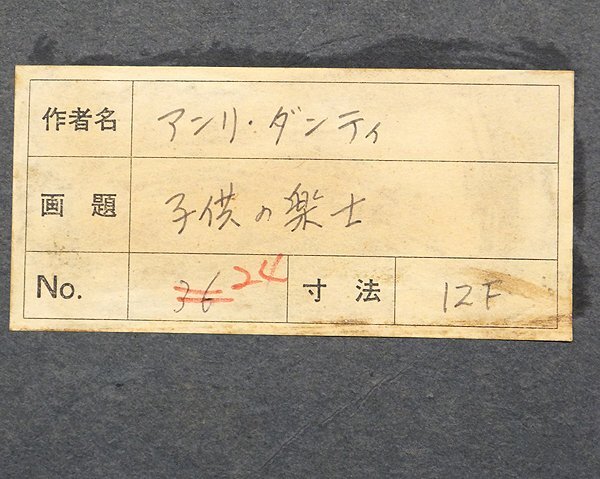 作者名 アンリ・ダンティ
画題 子供の楽士
No. 36 24 寸法 12F